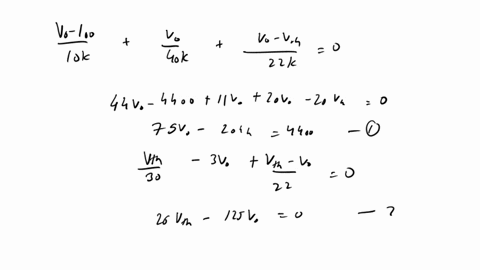 (V₀-100)/10k + V₀/40k + (V₀-Vth)/22k = 0
44V₀ - 4400 + 11V₀ + 20V₀ - 20Vh = 0
75V₀ - 20th = 4400 - ①
Vth/30 - 3V₀ + (Vth-V₀)/22 = 0
26Vth - 125V₀ = 0 - 2